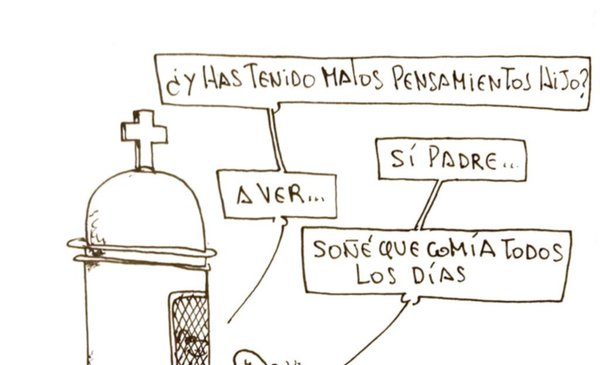 ¿Y HAS TENIDO MALOS PENSAMIENTOS HIJO?
SÍ PADRE...
A VER...
SOÑÉ QUE COMÍA TODOS
LOS DÍAS